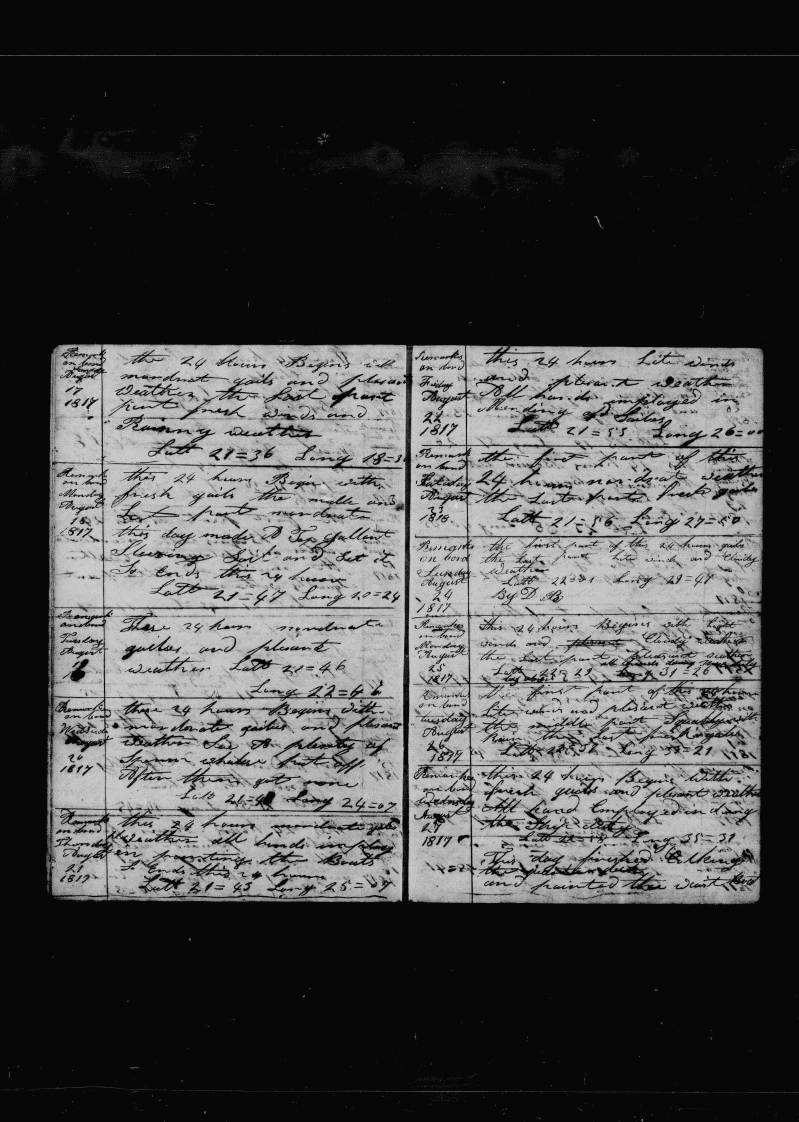 Remarks
on bord
August
17
1817
the 24 hours Begins with
mondrat gails and plesant
Weather the Last part
part fresh winds and
Rainny weather
Latt 21=36 Long 18=3
Remark
on bord
Monday
August
18
1817
this 24 hours Begin with
fresh gails the midle and
Last part mondrate
this day made A Top gallent
Sail and Set it
So Ends this 24 hours
Latt 21=47 Long 20=24
Remark
on bord
Tuesday
August
These 24 hours mondrate
gailes and plesant
weather Latt 21=46
Long 22=46
Remark
on bord
August
20
1817
these 24 hours Begins with
mondrate gailes and plesant
weather See A plenty of
Sperm whales put off
After them got none
Latt Long 24=07
Remark
on bord
Thursday
August
21
1817
this 24 hours mondrate gails
Weather all hands imploy
in painting the Boats
So Ends this 24 hours
Latt 21=43 Long 25=
Remarks
on bord
Friday
August
22
1817
this 24 hours Lite winds
and plesant weather
All hands imployed in
Mending of Sailes
Latt 21=55 Long 26=00
Remark
on bord
August
23
1818
the first part of this
24 hours mondrat weather
the Last parts fresh gailes
Latt 21=56 Long 27=50
Remarks
on bord
Sunday
August
24
1817
the first part of this 24 hours gails
the Last part Lite winds and Cloudy
Weather
Latt Long 29=47
By D R
Remarks
on bord
Monday
August
25
1817
this 24 hours Begins with Light
winds and Cloudy weather
the Last part plesant weather
Long 31=26
Remarks
on bord
tuesday
August
26
the first part of this 24 hours
Lite winds and plesant weather
the middle part Squally with
Rain the Last fresh gales
Latt Long 33=21
Remarks
on bord
Wednesday
August
27
1817
this 24 hours Begins With
fresh gailes and plesant weather
All hand Employed in doing
Long 35=31
This day finished
the
and painted the wast Boat